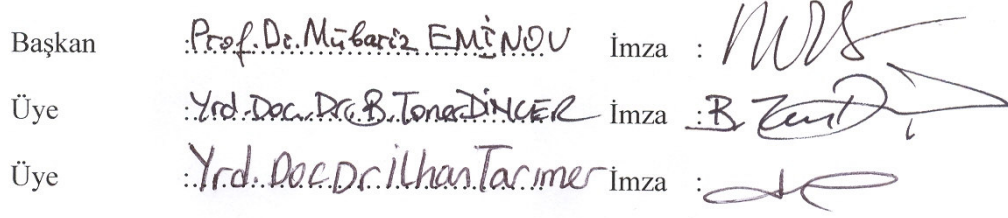 Başkan :Prof. Dr. Mübariz EMİNOV İmza :
Üye :Yrd. Doc. Dr. B. Taner DİNÇER İmza :
Üye :Yrd. Doc. Dr. İlhan Tarımer İmza :